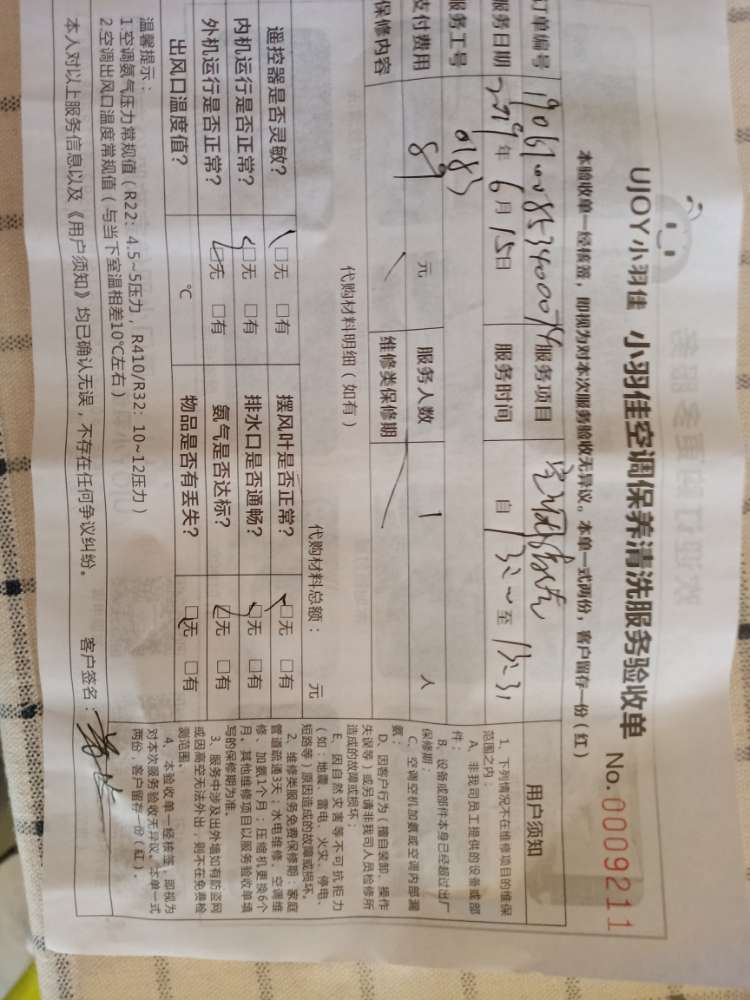 UJOY小羽佳 小羽佳空调保养清洗服务验收单 No.0009211
本验收单一经核签，即视为对本次服务验收无异议。本单一式两份，客户留存一份（红）
订单编号 服务项目 空调清洗
服务日期 2019年6月15日 服务时间 自 至
服务工号 0183
支付费用 89 元 服务人数 1 人
保修内容 维修类保修期
代购材料明细（如有）
代购材料总额： 元
遥控器是否灵敏？ □无 □有 摆风叶是否正常？ □无 □有
内机运行是否正常？ □无 □有 排水口是否通畅？ □无 □有
外机运行是否正常？ □无 □有 氨气是否达标？ □无 □有
出风口温度值？ ℃ 物品是否有丢失？ □无 □有
温馨提示：
1.空调氨气压力常规值（R22：4.5~5压力，R410/R32：10~12压力）
2.空调出风口温度常规值（与当下室温相差10℃左右）
本人对以上服务信息以及《用户须知》均已确认无误，不存在任何争议纠纷。 客户签名：
用户须知
1、下列情况不在维修项目的维保
范围之内：
A、非我司员工提供的设备或部
件；
B、设备或部件本身已经超过出厂
保修期；
C、空调空机加氨或空调内部漏
氨；
D、因客户行为（擅自装卸、操作
失误等）或另请非我司人员检修所
造成的故障或损坏；
E、因自然灾害等不可抗拒力
（如：地震、雷电、火灾、停电、
短路等）原因造成的故障或损坏。
2、维修类服务免费保修期：家庭
管道疏通3天；水电维修、空调维
修、加氨1个月；压缩机更换6个
月。其他维修项目以服务验收单填
写的保修期为准。
3、服务中涉及出外墙如有防盗网
或因高空无法外出，则不在免费检
测范围。
4、本验收单一经核签，即视为
对本次服务验收无异议。本单一式
两份，客户留存一份（红）。